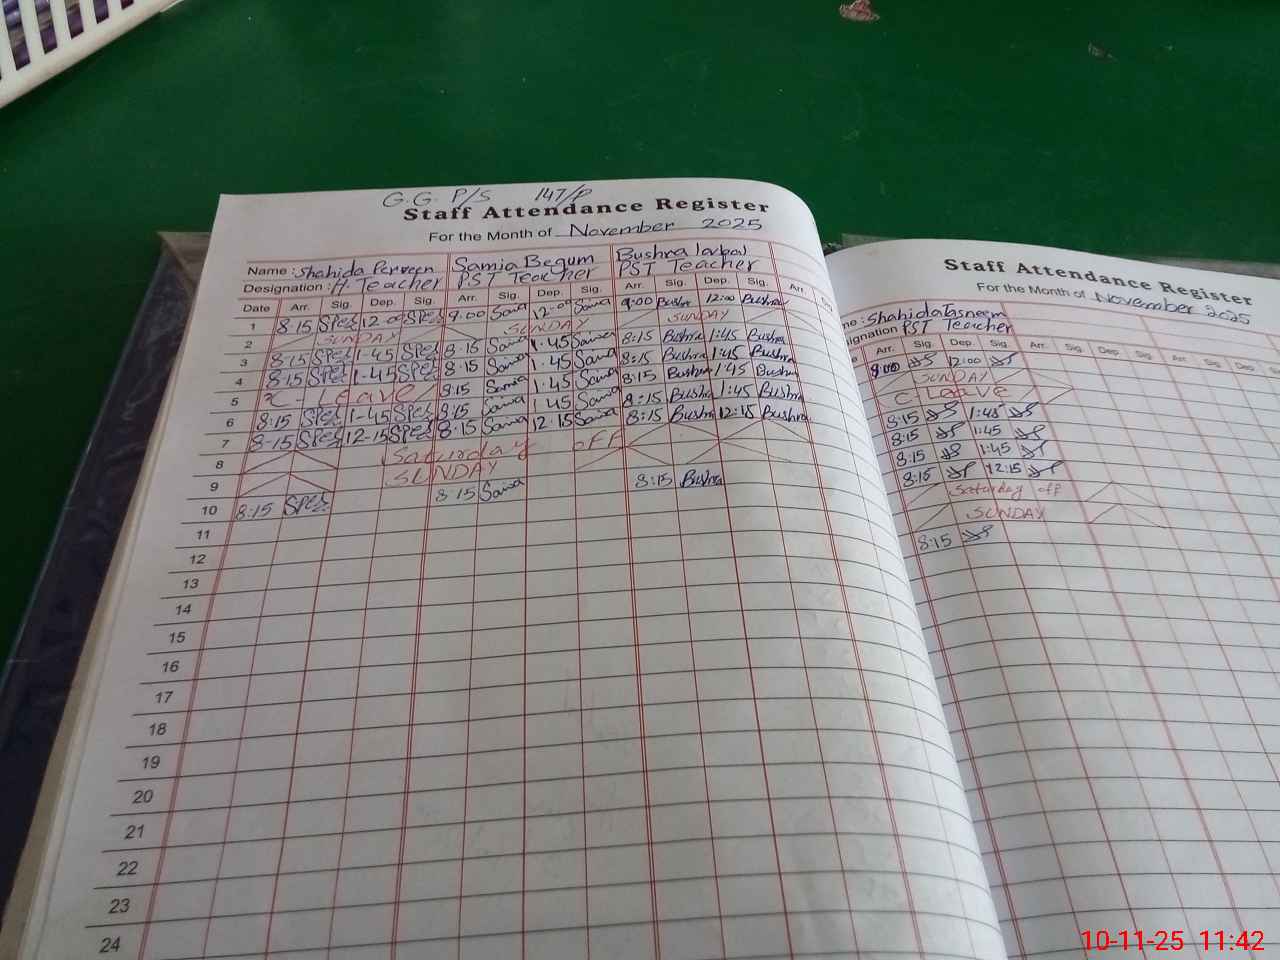 G.G. P/S 147/P
Staff Attendance Register
For the Month of November 2025
Name : Shahida Perveen Samia Begum Bushra Iqbal
Designation : H. Teacher PST Teacher PST Teacher
Date Arr. Sig. Dep. Sig. Arr. Sig. Dep. Sig. Arr. Sig. Dep. Sig. Arr.
1 8:15 12:00 9:00 12:00 9:00 Bushra 12:00 Bushra
2 SUNDAY SUNDAY SUNDAY
3 8:15 1:45 8:15 1:45 8:15 Bushra 1:45 Bushra
4 8:15 1:45 8:15 1:45 8:15 Bushra 1:45 Bushra
5 C. Leave 8:15 1:45 8:15 Bushra 1:45 Bushra
6 8:15 1-45 8:15 1:45 8:15 Bushra 1:45 Bushra
7 8-15 12-15 8:15 12:15 8:15 Bushra 12:15 Bushra
8 Saturday off
9 SUNDAY
10 8:15 8:15 8:15 Bushra
11
12
13
14
15
16
17
18
19
20
21
22
23
24
Staff Attendance Register
For the Month of November 2025
me : Shahida Tasneem
ignation PST Teacher
Arr. Sig. Dep. Sig. Arr. Sig. Dep. Sig. Arr. Sig. Dep.
9:00 12:00
SUNDAY
C. Leave
8:15 1:45
8:15 1:45
8:15 1:45
8:15 12:15
Saturday off
SUNDAY
8:15
10-11-25 11:42